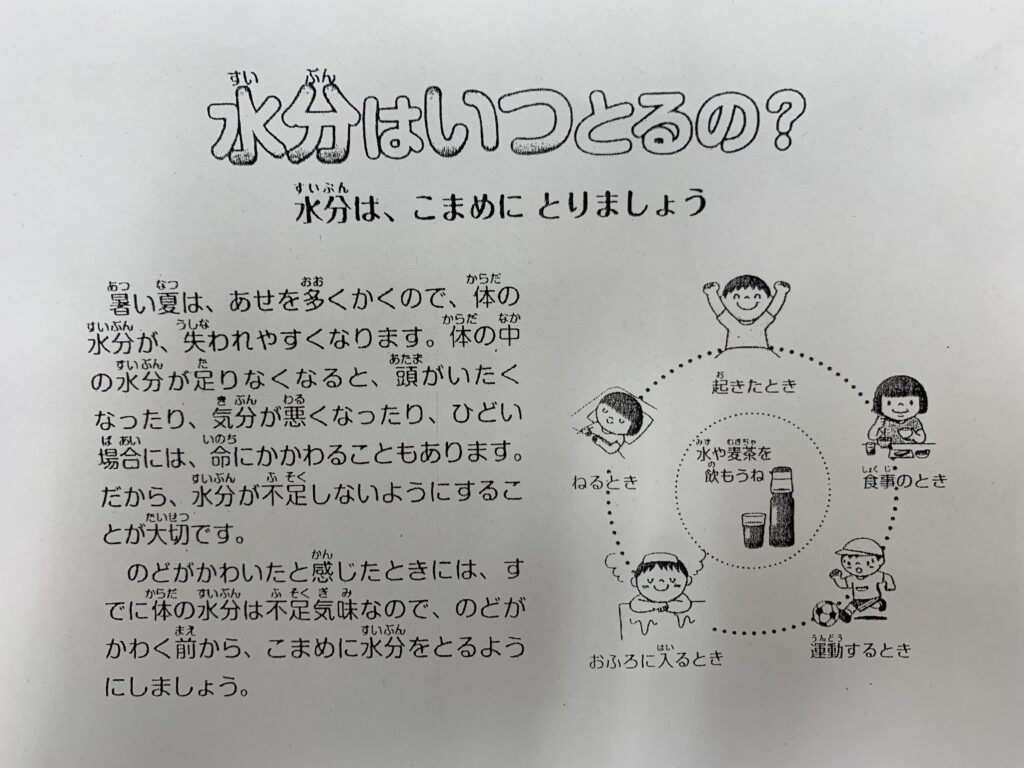 水分はいつとるの？
水分は、こまめに とりましょう
暑い夏は、あせを多くかくので、体の
水分が、失われやすくなります。体の中
の水分が足りなくなると、頭がいたく
なったり、気分が悪くなったり、ひどい
場合には、命にかかわることもあります。
だから、水分が不足しないようにするこ
とが大切です。
のどがかわいたと感じたときには、す
でに体の水分は不足気味なので、のどが
かわく前から、こまめに水分をとるよう
にしましょう。
起きたとき
食事のとき
運動するとき
おふろに入るとき
ねるとき
水や麦茶を
飲もうね